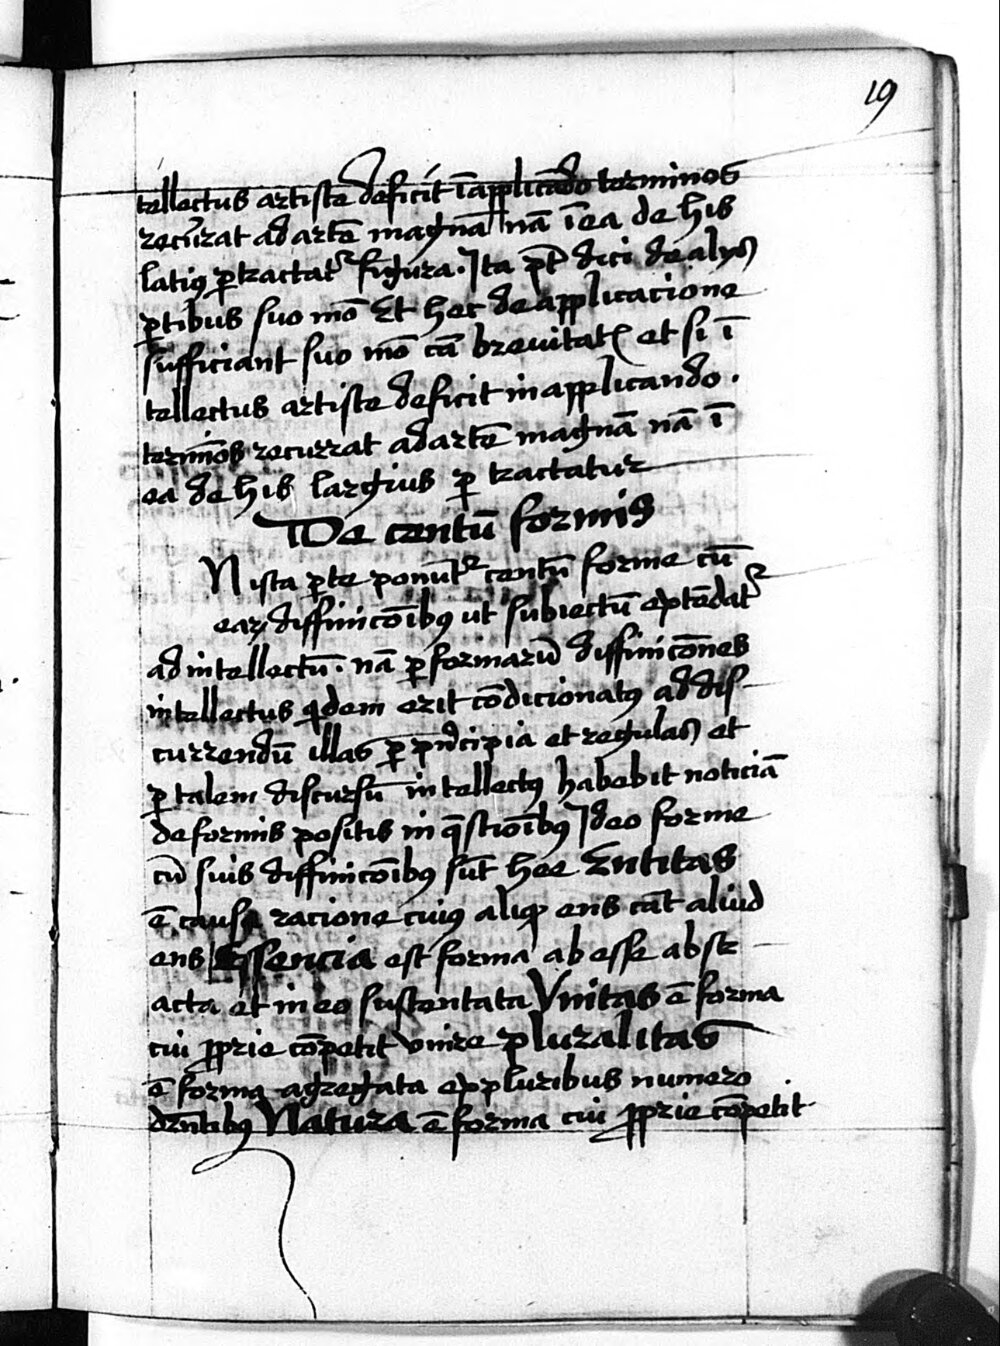 19
tellectus artiste deficit ī applicādo terminos
recurrat ad artē magnā nā ī ea de his
latiꝰ ꝑtractatᷣ figura. Ita pt̄ dici de alijs
ꝑtibus suo mō Et hec de applicacione
sufficiant suo mō cā breuitatꝭ et si ī
tellectus artiste deficit in applicando.
terminos recurrat ad artē magnā nā ī
ea de his largius ꝑ tractatur
De centū formis
N ista ꝑte ponūtᷣ centū forme cū
eaꝝ diffinicōībꝰ ut subiectū eptēdatᷣ
ad intellectū. nā ꝑ formarū diffinicōnes
intellectus qͥdem erit cōdicionatꝰ ad dis
currendū illas ꝑ pͥncipia et regulas et
ꝑ talem discursū intellectꝰ habebit noticiā
de formis positis in q̄stioībꝰ Ideo forme
cū suis diffinicōībꝰ sūt hee Entitas
ē causa racione cuiꝰ aliqͩ ens cāt aliud
ens Essencia est forma ab esse abstr
acta et in eo sustentata Vnitas ē forma
cui ꝓprie cōpetit vnire pluralitas
ē forma agregata ex pluribus numero
drn̄tibꝰ Natura ē forma cui ꝓprie cōpetit